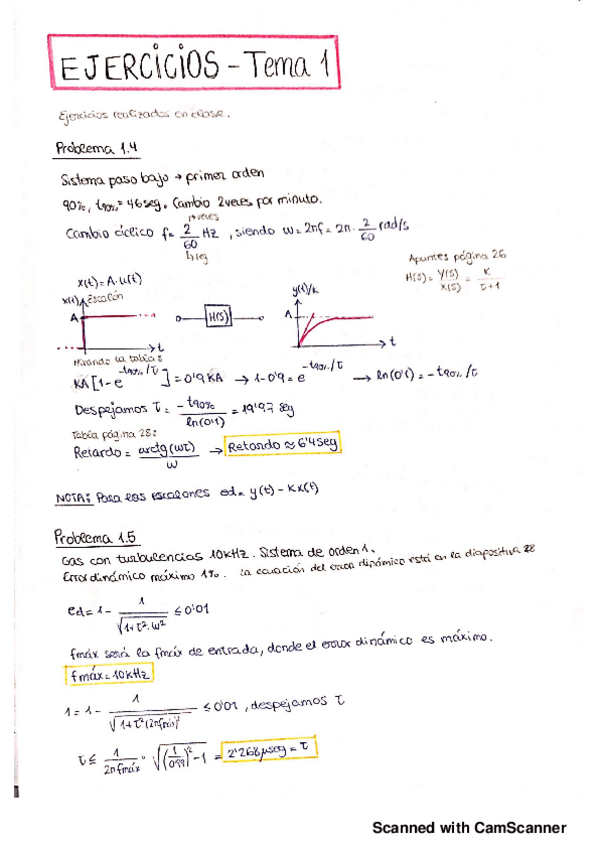 EJERCICIOS - Tema 1
Ejercicios realizados en clase.
Problema 1.4
Sistema paso bajo → primer orden
90%, t90% = 46 seg. Cambio 2 veces por minuto.
Cambio cíclico f = 2/60 Hz, siendo ω = 2πf = 2π · 2/60 rad/s
veces
seg
Apuntes página 26
H(s) = Y(s)/X(s) = K/τ+1
x(t) = A·u(t)
x(t) Escalón
A
t
H(s)
y(t)/K
A
t
Mirando la tabla:
KA[1-e^-t90%/τ] = 0'9 KA → 1-0'9 = e^-t90%/τ → ln(0'1) = -t90%/τ
Despejamos τ = -t90%/ln(0'1) = 19'97 seg
Tabla página 28:
Retardo = arctg(ωτ)/ω → Retardo ≈ 6'4 seg
NOTA: Para los escalones ed = y(t) - Kx(t)
Problema 1.5
Gas con turbulencias 10 kHz. Sistema de orden 1.
Error dinámico máximo 1%. La ecuación del error dinámico está en la diapositiva 28
ed = 1 - 1/√(1+τ²·ω²) ≤ 0'01
fmáx será la fmáx de entrada, donde el error dinámico es máximo.
fmáx = 10 kHz
1 = 1 - 1/√(1+τ²(2πfmáx)²) ≤ 0'01, despejamos τ
τ ≤ 1/2πfmáx · √((1/0'99)²-1) = 2'268 μseg = τ
Scanned with CamScanner